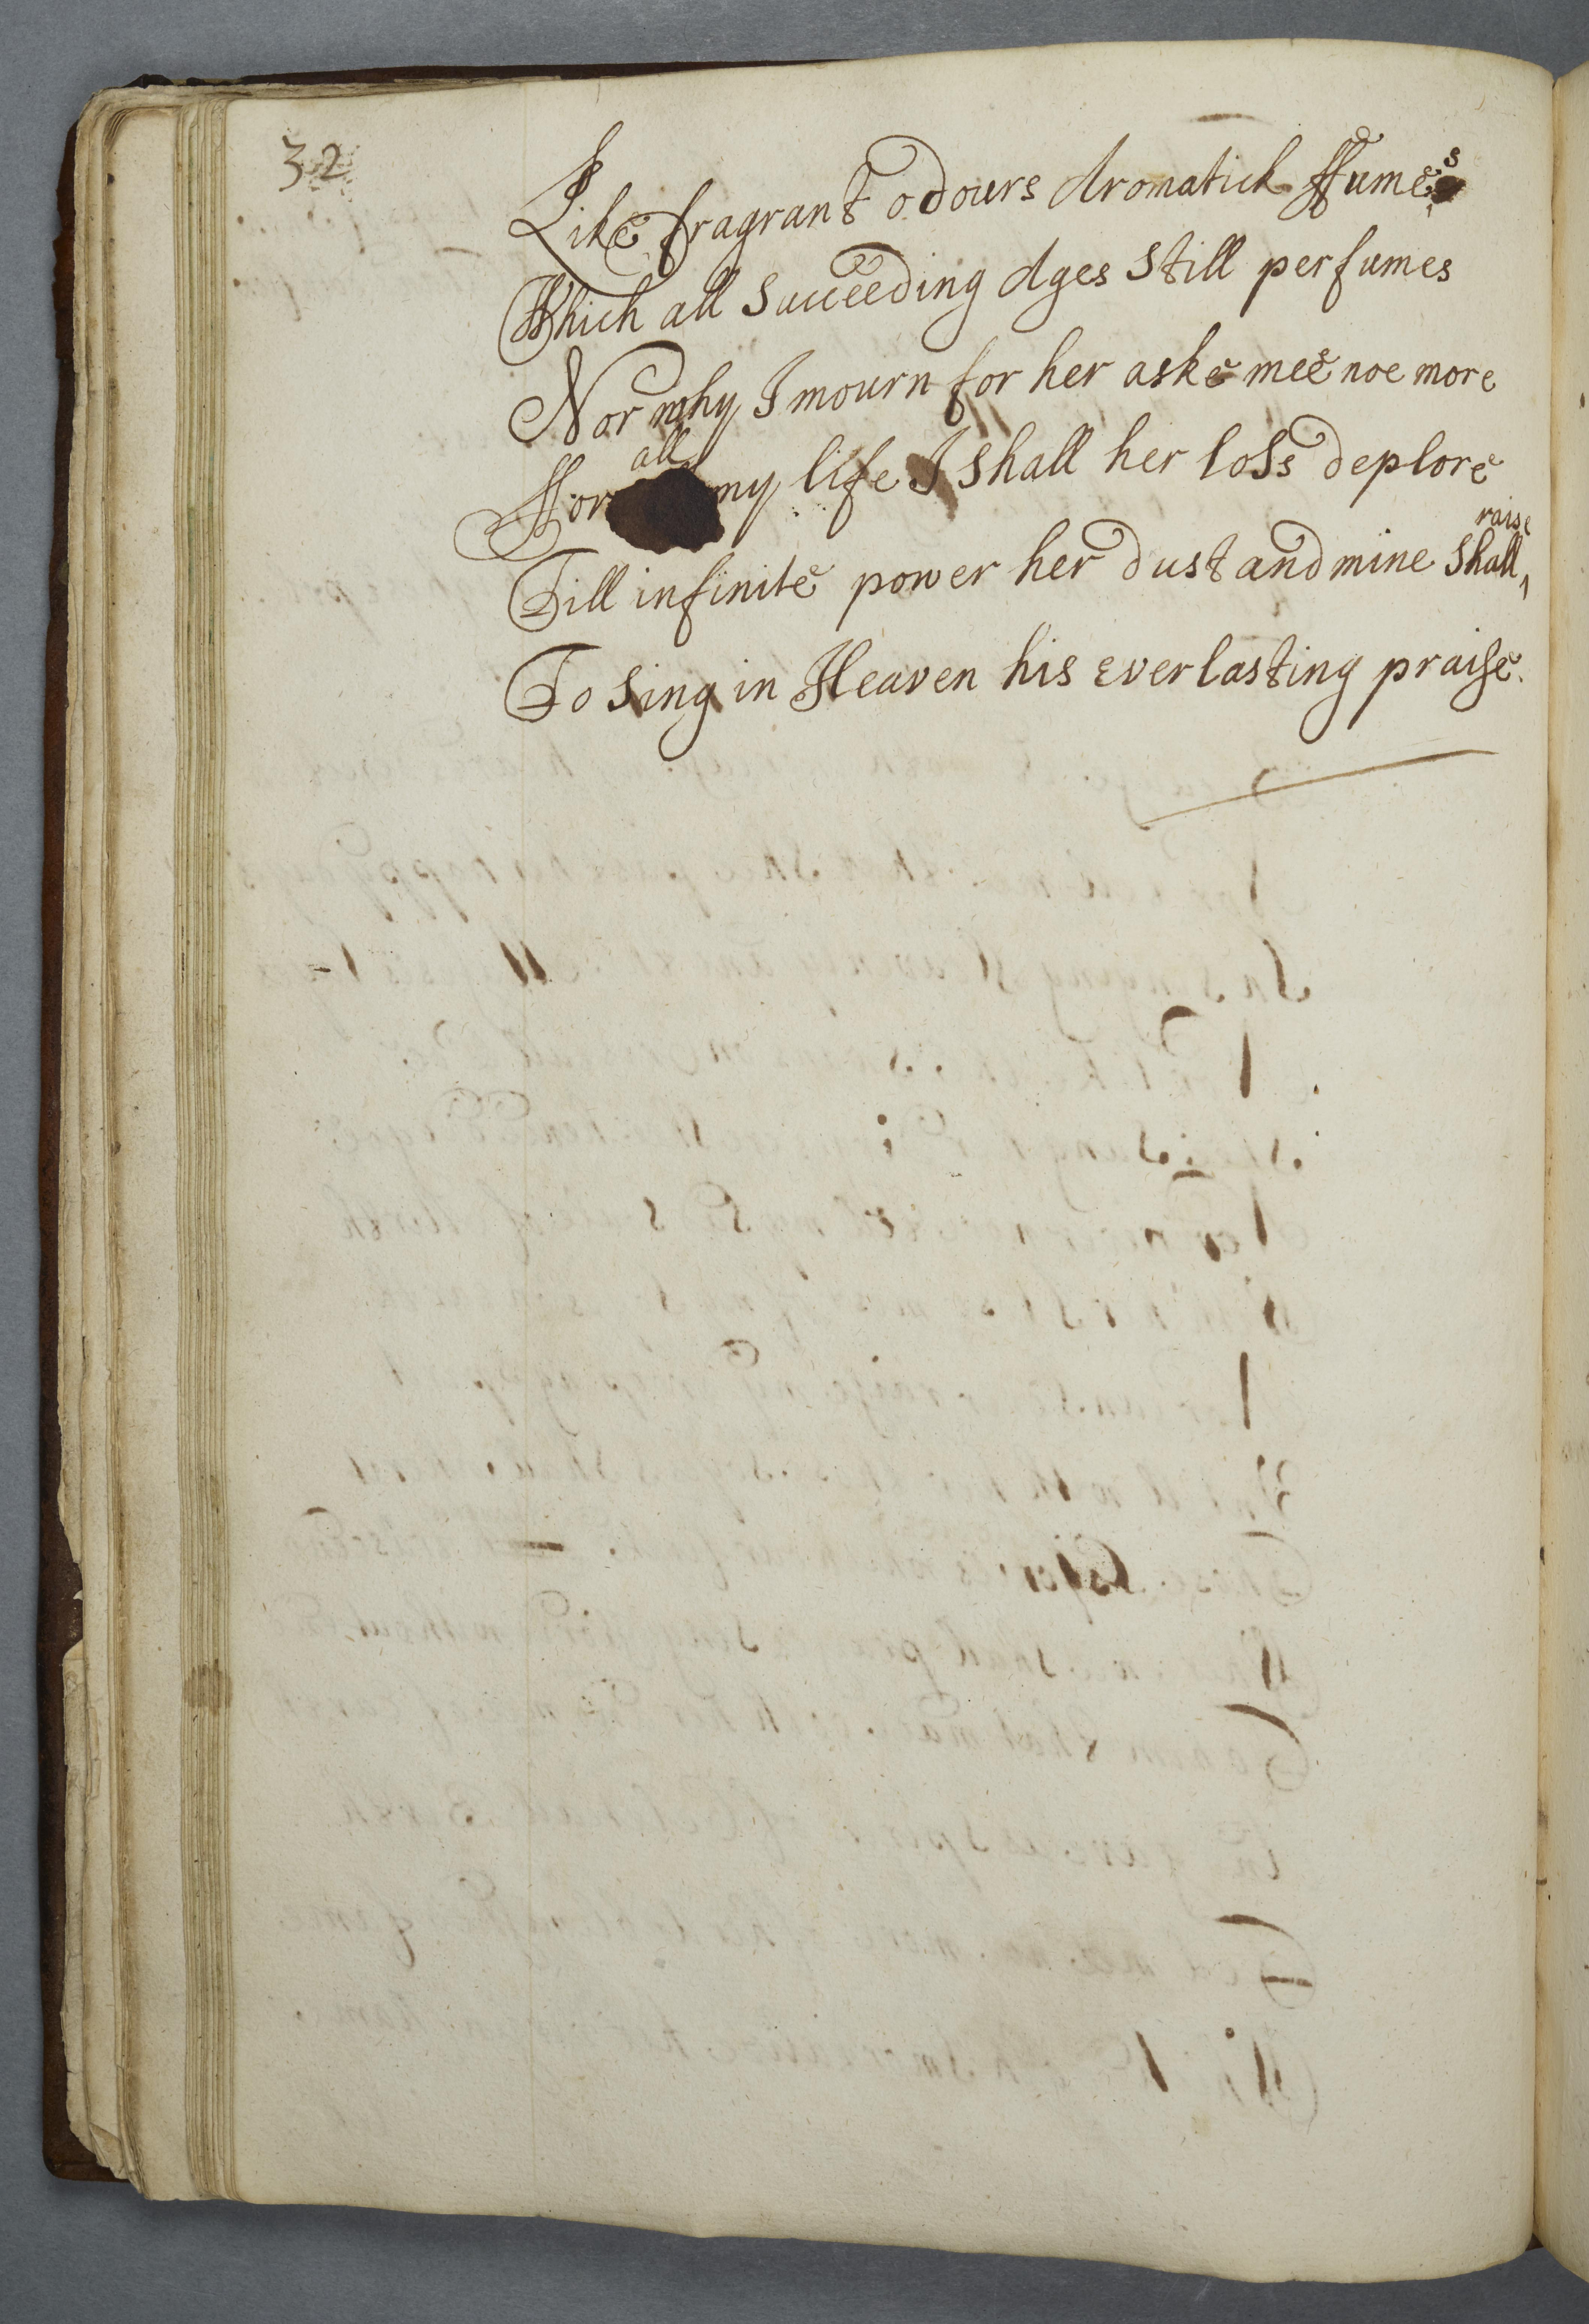 32
Like fragrant odours Aromatick ffumes
Which all Succeeding Ages Still perfumes
Nor why I mourn for her aske mee noe more
ffor all my life I Shall her loss deplore
Till infinite power her dust and mine Shall raise
To Sing in Heaven his Everlasting praise.